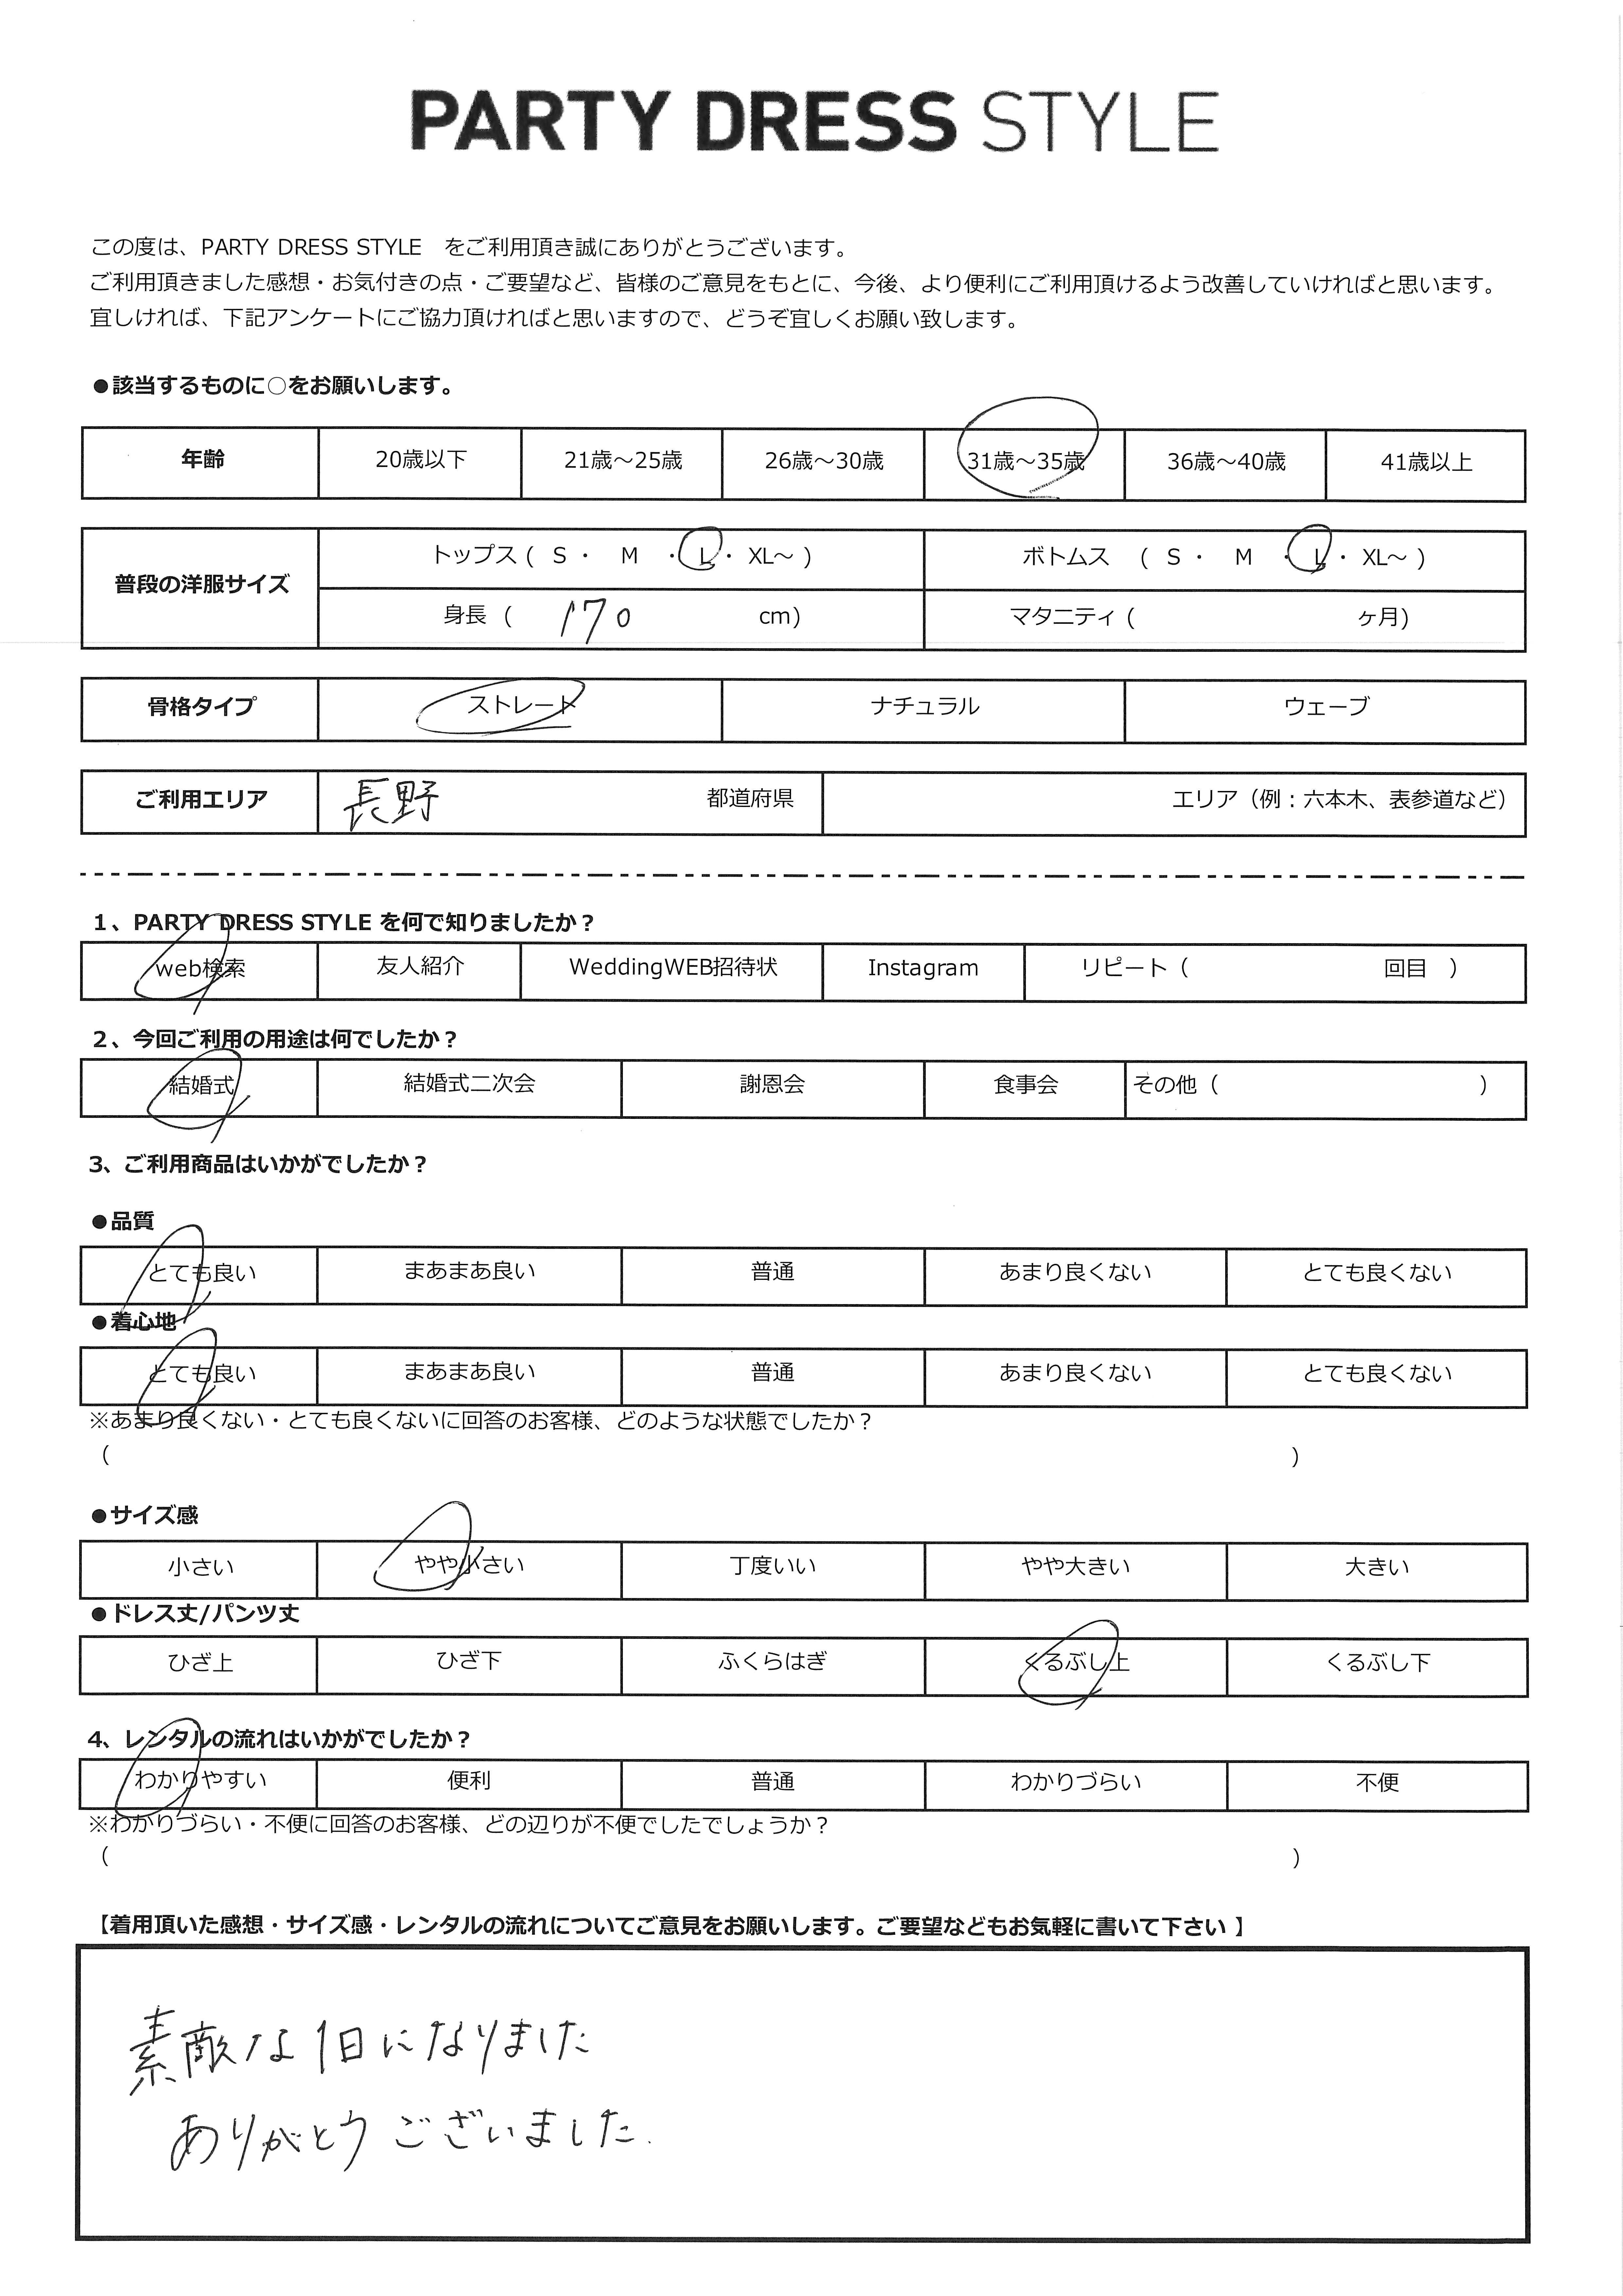 PARTY DRESS STYLE
この度は、PARTY DRESS STYLE　をご利用頂き誠にありがとうございます。
ご利用頂きました感想・お気付きの点・ご要望など、皆様のご意見をもとに、今後、より便利にご利用頂けるよう改善していければと思います。
宜しければ、下記アンケートにご協力頂ければと思いますので、どうぞ宜しくお願い致します。
●該当するものに○をお願いします。
年齢 20歳以下 21歳～25歳 26歳～30歳 31歳～35歳 36歳～40歳 41歳以上
普段の洋服サイズ
トップス ( S ・ M ・ L ・ XL～ ) ボトムス ( S ・ M ・ L ・ XL～ )
身長 ( 170 cm) マタニティ ( ヶ月)
骨格タイプ ストレート ナチュラル ウェーブ
ご利用エリア 長野 都道府県 エリア（例：六本木、表参道など）
1、PARTY DRESS STYLE を何で知りましたか？
web検索 友人紹介 WeddingWEB招待状 Instagram リピート（ 回目 ）
2、今回ご利用の用途は何でしたか？
結婚式 結婚式二次会 謝恩会 食事会 その他（ ）
3、ご利用商品はいかがでしたか？
●品質
とても良い まあまあ良い 普通 あまり良くない とても良くない
●着心地
とても良い まあまあ良い 普通 あまり良くない とても良くない
※あまり良くない・とても良くないに回答のお客様、どのような状態でしたか？
（ ）
●サイズ感
小さい やや小さい 丁度いい やや大きい 大きい
●ドレス丈/パンツ丈
ひざ上 ひざ下 ふくらはぎ くるぶし上 くるぶし下
4、レンタルの流れはいかがでしたか？
わかりやすい 便利 普通 わかりづらい 不便
※わかりづらい・不便に回答のお客様、どの辺りが不便でしたでしょうか？
（ ）
【着用頂いた感想・サイズ感・レンタルの流れについてご意見をお願いします。ご要望などもお気軽に書いて下さい 】
素敵な1日になりました
ありがとうございました.